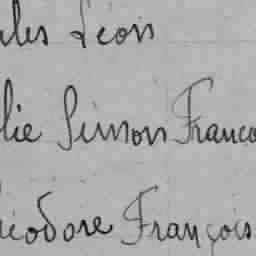 ules Léon
lie Simon Franço
héodore François